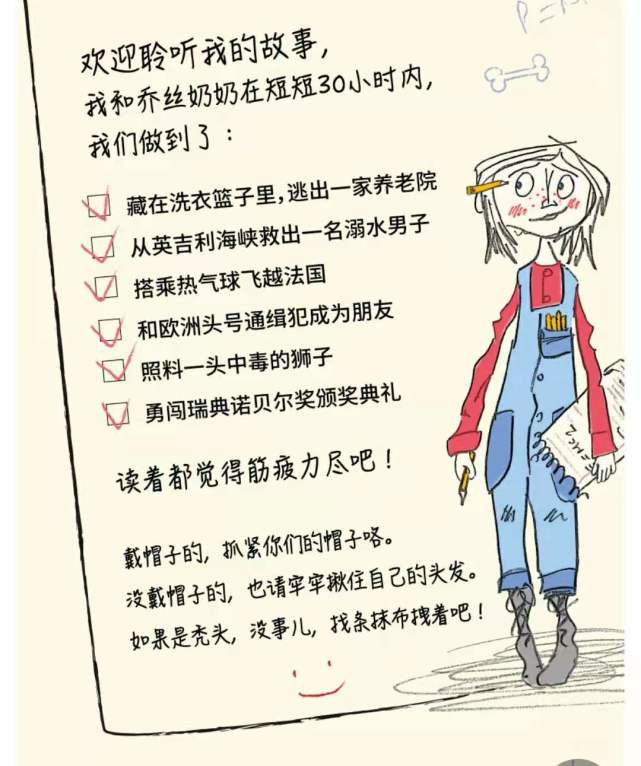 欢迎聆听我的故事，
我和乔丝奶奶在短短30小时内，
我们做到了：
藏在洗衣篮子里，逃出一家养老院
从英吉利海峡救出一名溺水男子
搭乘热气球飞越法国
和欧洲头号通缉犯成为朋友
照料一头中毒的狮子
勇闯瑞典诺贝尔奖颁奖典礼
读着都觉得筋疲力尽吧！
戴帽子的，抓紧你们的帽子咯。
没戴帽子的，也请牢牢揪住自己的头发。
如果是秃头，没事儿，找条抹布拽着吧！